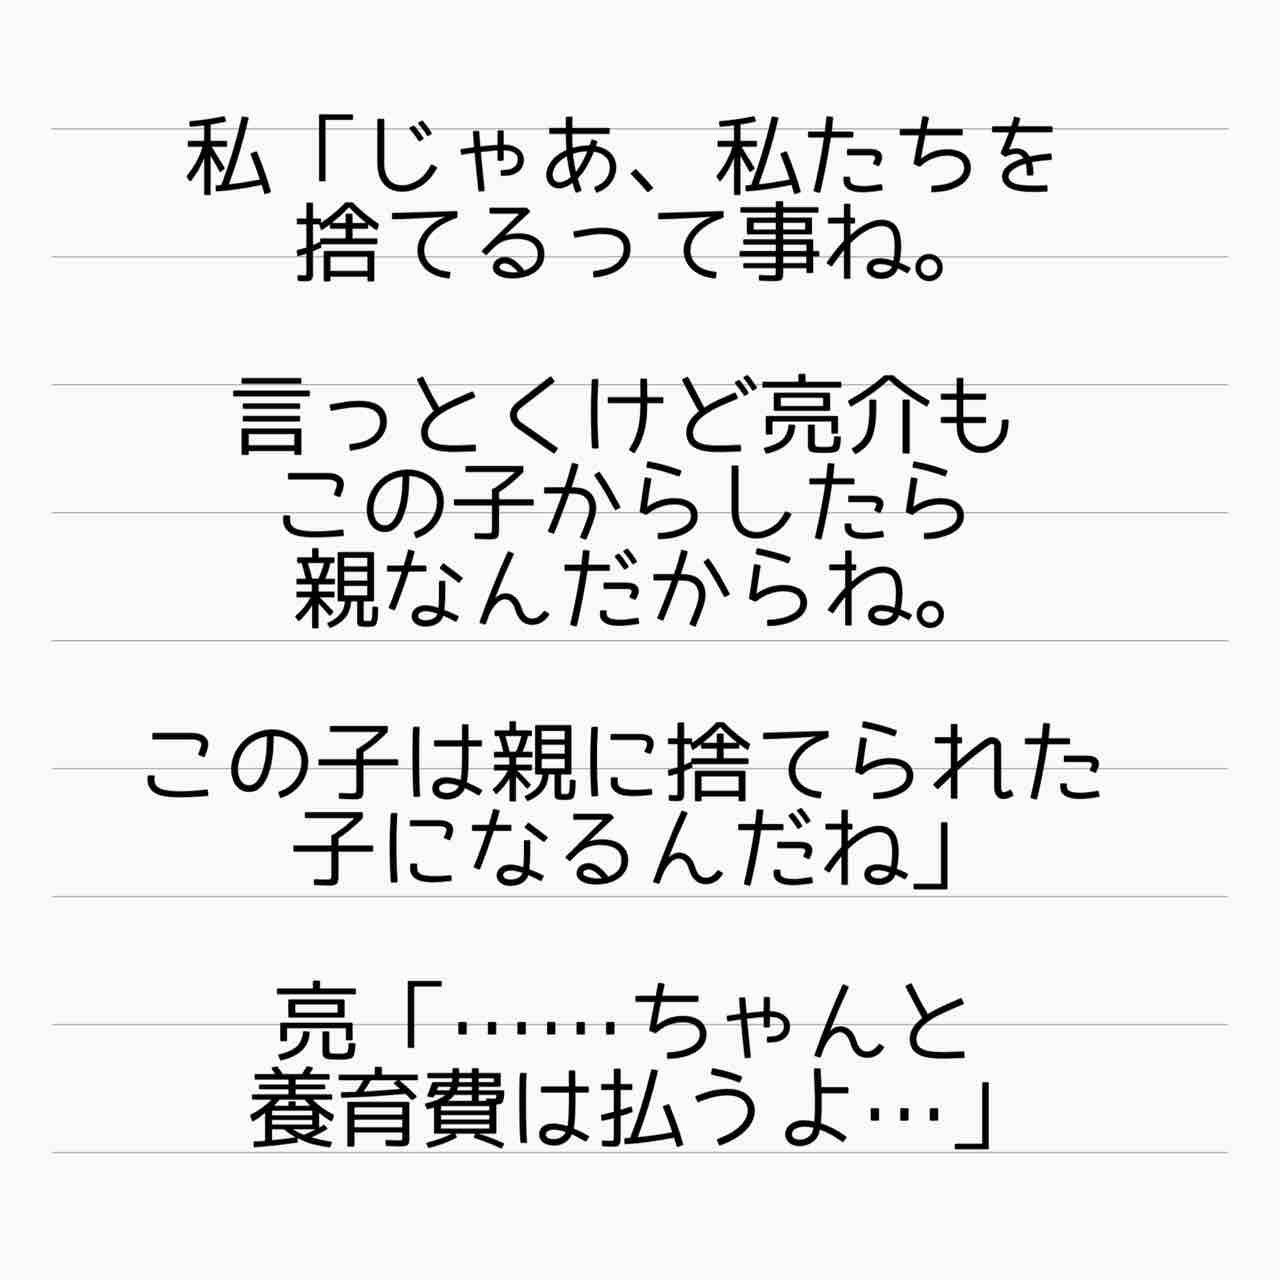 私「じゃあ、私たちを
捨てるって事ね。
言っとくけど亮介も
この子からしたら
親なんだからね。
この子は親に捨てられた
子になるんだね」
亮「……ちゃんと
養育費は払うよ…」